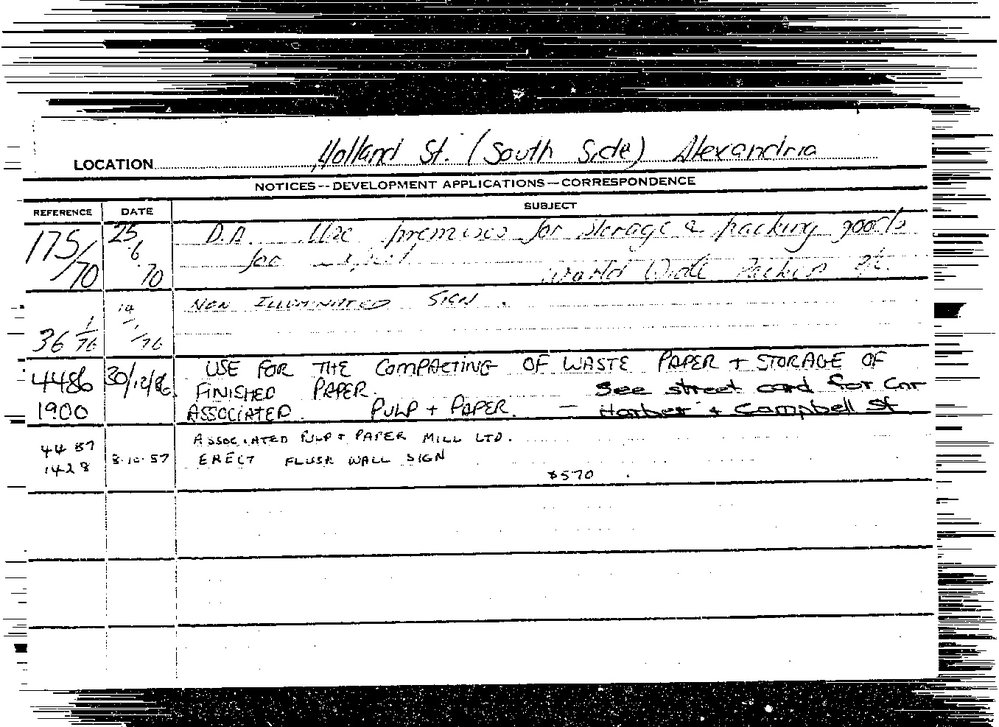 LOCATION Holland St. (South Side) Alexandria
NOTICES--DEVELOPMENT APPLICATIONS—CORRESPONDENCE
REFERENCE DATE SUBJECT
175/70 25/6/70 D.A. Use premises for storage & packing goods
for World Wide Packers Pt.
36 1/76 14/1/76 NON ILLUMINATED SIGN.
4486 30/12/86 USE FOR THE COMPACTING OF WASTE PAPER + STORAGE OF
FINISHED PAPER. See street card for Cnr
1900 ASSOCIATED PULP + PAPER. — Harber + Campbell St
44 87 ASSOCIATED PULP + PAPER MILL LTD.
1428 8-10-87 ERECT FLUSH WALL SIGN
$570